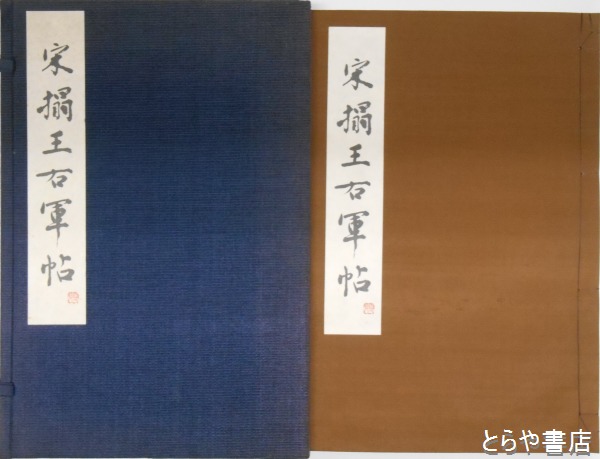 宋搨王右軍帖
宋搨王右軍帖
とらや書店